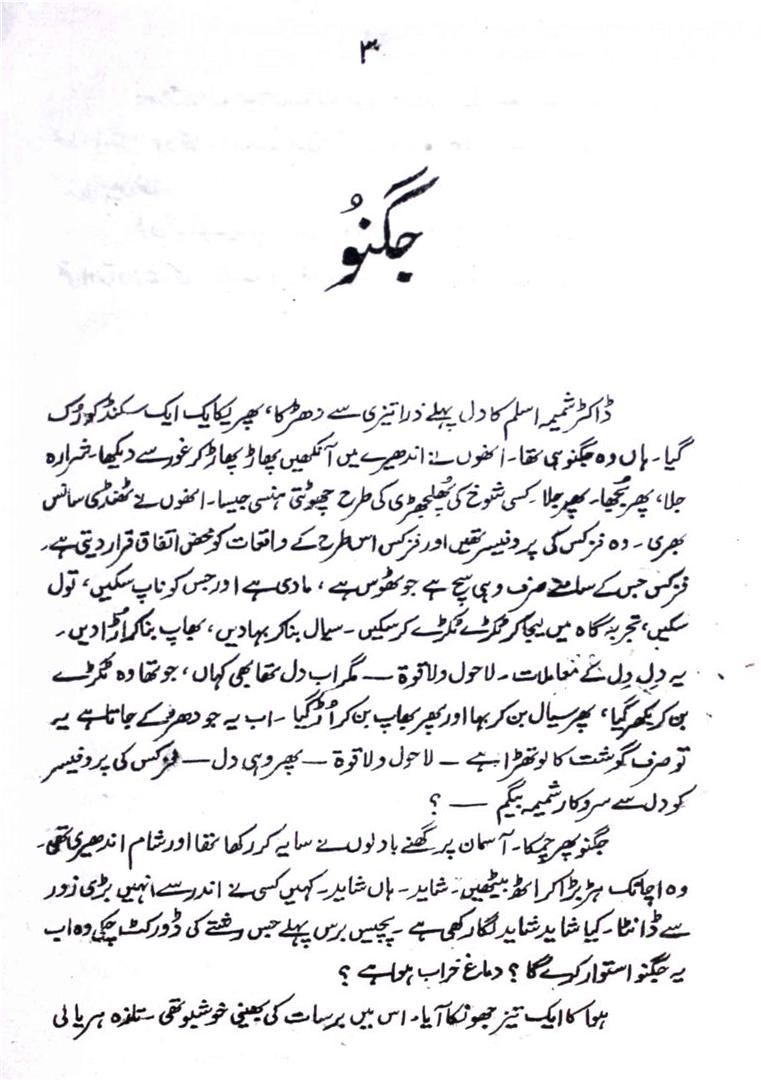 ۳
جگنوُ
ڈاکٹر شمیمہ اسلم کا دل پہلے ذرا تیزی سے دھڑکا، پھر یکایک ایک سکنڈ کو رُک
گیا۔ ہاں وہ جگنو ہی تھا۔ انھوں نے اندھیرے میں آنکھیں پھاڑ پھاڑ کر غور سے دیکھا۔ شرارہ
جلا، پھر بُجھا۔ پھر جلا۔ کسی شوخ کی پُھلجھڑی کی طرح چھوٹتی ہنسی جیسا۔ انھوں نے ٹھنڈی سانس
بھری۔ وہ فزکس کی پروفیسر تھیں اور فزکس اس طرح کے واقعات کو محض اتفاق قرار دیتی ہے۔
فزکس جس کے سامنے صرف وہی سچ ہے جو ٹھوس ہے، مادی ہے اور جس کو ناپ سکیں، تول
سکیں، تجربہ گاہ میں لیجا کر ٹکڑے ٹکڑے کر سکیں۔ سیال بنا کر بہا دیں، بھاپ بنا کر اُڑا دیں۔
یہ دِل دِل کے معاملات۔ لاحول ولا قوۃ — مگر اب دل تھا بھی کہاں، جو تھا وہ ٹکڑے
بن کر بکھر گیا، پھر سیال بن کر بہا اور پھر بھاپ بن کر اُڑ گیا۔ اب یہ جو دھڑکے جاتا ہے یہ
تو صرف گوشت کا لوتھڑا ہے — لاحول ولا قوۃ — پھر وہی دل — فزکس کی پروفیسر
کو دل سے سروکار شمیمہ بیگم — ؟
جگنو پھر چمکا۔ آسمان پر گھنے بادلوں نے سایہ کر رکھا تھا اور شام اندھیری تھی۔
وہ اچانک ہڑبڑا کر اٹھ بیٹھیں۔ شاید۔ ہاں شاید۔ کہیں کسی نے اندر سے انہیں بڑی زور
سے ڈانٹا۔ کیا شاید شاید لگا رکھی ہے۔ پچیس برس پہلے جس رشتے کی ڈور کٹ چکی وہ اب
یہ جگنو استوار کرے گا؟ دماغ خراب ہوا ہے؟
ہوا کا ایک تیز جھونکا آیا۔ اس میں برسات کی بھینی خوشبو تھی۔ تازہ ہریالی